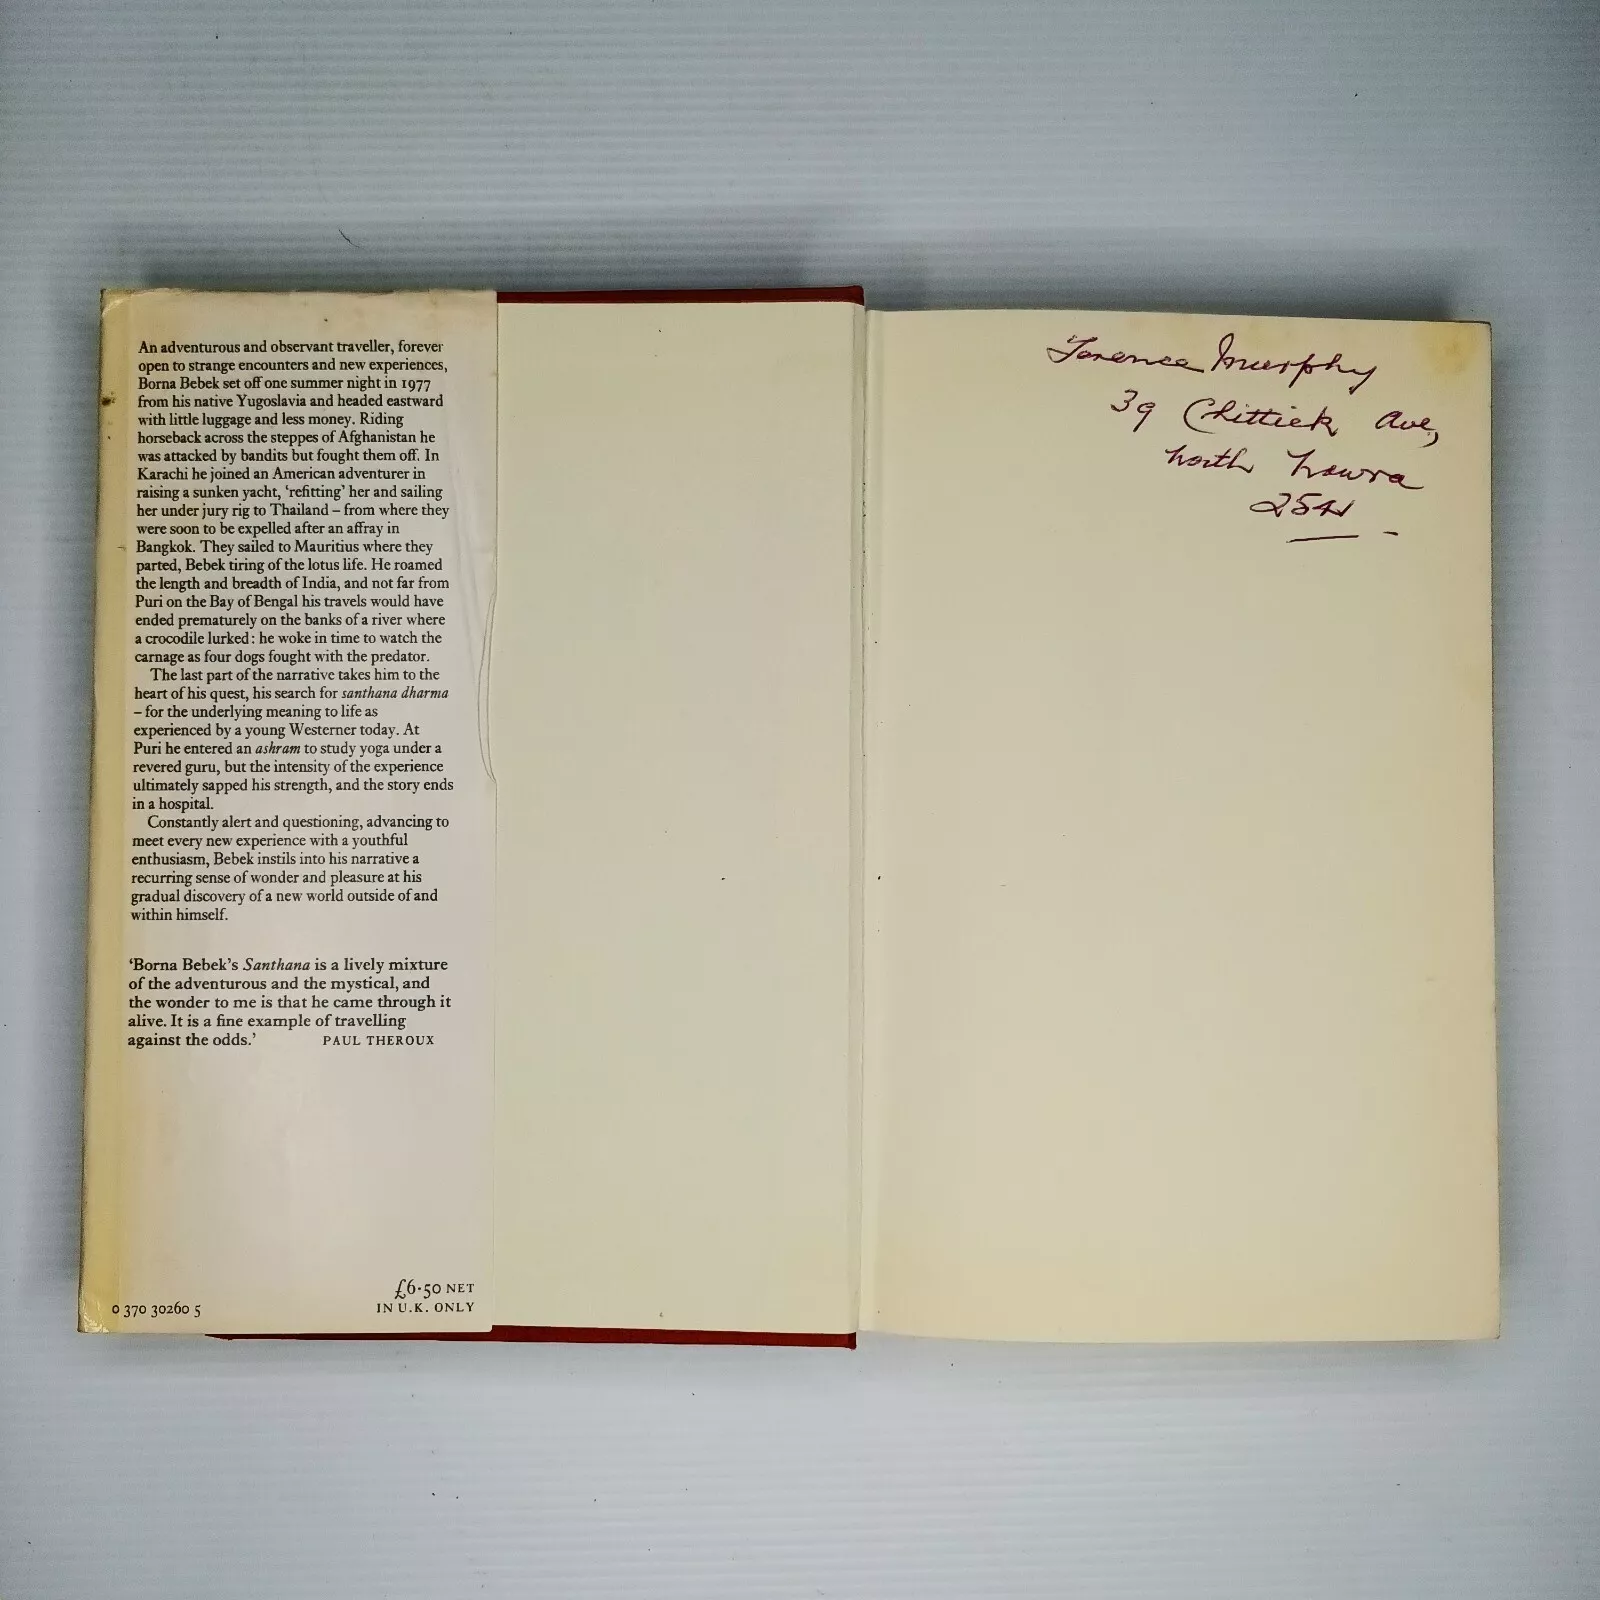 An adventurous and observant traveller, forever
open to strange encounters and new experiences,
Borna Bebek set off one summer night in 1977
from his native Yugoslavia and headed eastward
with little luggage and less money. Riding
horseback across the steppes of Afghanistan he
was attacked by bandits but fought them off. In
Karachi he joined an American adventurer in
raising a sunken yacht, ‘refitting’ her and sailing
her under jury rig to Thailand – from where they
were soon to be expelled after an affray in
Bangkok. They sailed to Mauritius where they
parted, Bebek tiring of the lotus life. He roamed
the length and breadth of India, and not far from
Puri on the Bay of Bengal his travels would have
ended prematurely on the banks of a river where
a crocodile lurked: he woke in time to watch the
carnage as four dogs fought with the predator.
The last part of the narrative takes him to the
heart of his quest, his search for santhana dharma
– for the underlying meaning to life as
experienced by a young Westerner today. At
Puri he entered an ashram to study yoga under a
revered guru, but the intensity of the experience
ultimately sapped his strength, and the story ends
in a hospital.
Constantly alert and questioning, advancing to
meet every new experience with a youthful
enthusiasm, Bebek instils into his narrative a
recurring sense of wonder and pleasure at his
gradual discovery of a new world outside of and
within himself.
‘Borna Bebek’s Santhana is a lively mixture
of the adventurous and the mystical, and
the wonder to me is that he came through it
alive. It is a fine example of travelling
against the odds.’ PAUL THEROUX
£6·50 NET
IN U.K. ONLY
0 370 30260 5
Terence Murphy
39 Chittick Ave,
North Nowra
2541